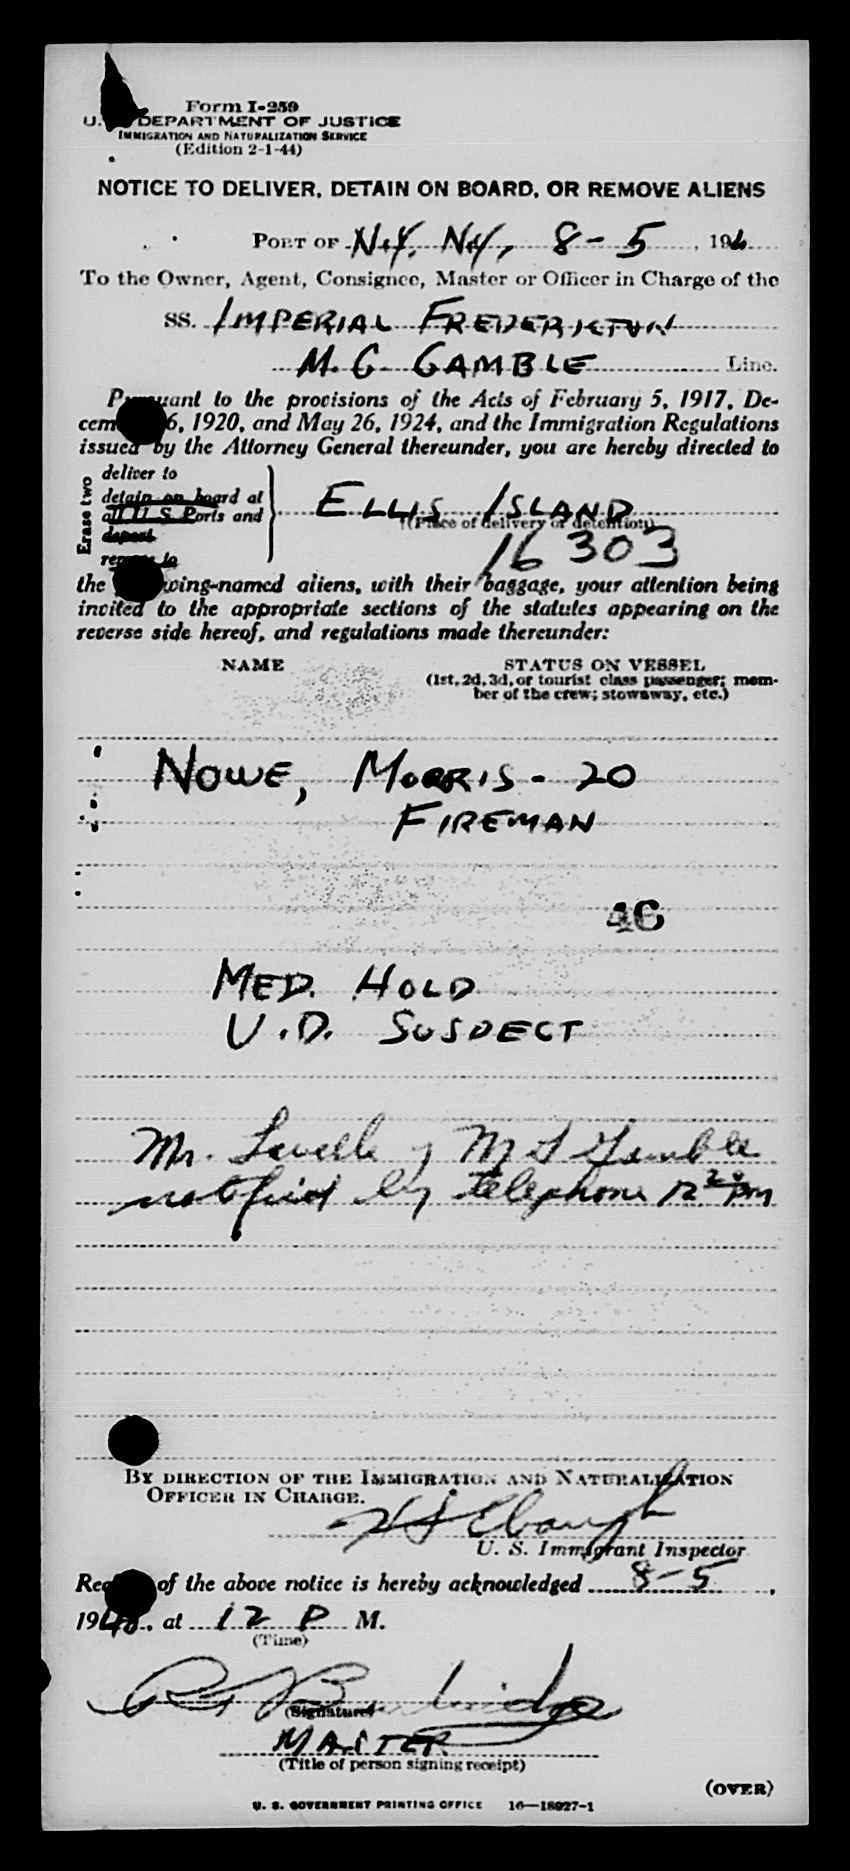 Form I-259
U. DEPARTMENT OF JUSTICE
IMMIGRATION AND NATURALIZATION SERVICE
(Edition 2-1-44)
NOTICE TO DELIVER, DETAIN ON BOARD, OR REMOVE ALIENS
PORT OF N.Y. NY, 8-5, 1946
To the Owner, Agent, Consignee, Master or Officer in Charge of the
SS. IMPERIAL FREDERICTON
M. G GAMBLE Line.
Pursuant to the provisions of the Acts of February 5, 1917, De-
cem 6, 1920, and May 26, 1924, and the Immigration Regulations
issued by the Attorney General thereunder, you are hereby directed to
Erase two
deliver to
detain on board at
all U. S. Ports and
deport
remove to
ELLIS ISLAND
(Place of delivery or detention)
16303
the wing-named aliens, with their baggage, your attention being
invited to the appropriate sections of the statutes appearing on the
reverse side hereof, and regulations made thereunder:
NAME STATUS ON VESSEL
(1st, 2d, 3d, or tourist class passenger; mem-
ber of the crew; stowaway, etc.)
NOWE, MORRIS - 20
FIREMAN
46
MED. HOLD
V.D. SUSPECT
Mr. of M Gamble
notified by telephone 12 20 pm
BY DIRECTION OF THE IMMIGRATION AND NATURALIZATION
OFFICER IN CHARGE.
U. S. Immigrant Inspector
Rec of the above notice is hereby acknowledged 8-5,
1946., at 12 P M.
(Time)
(Signature)
MASTER
(Title of person signing receipt)
(OVER)
U. S. GOVERNMENT PRINTING OFFICE 16—18927-1